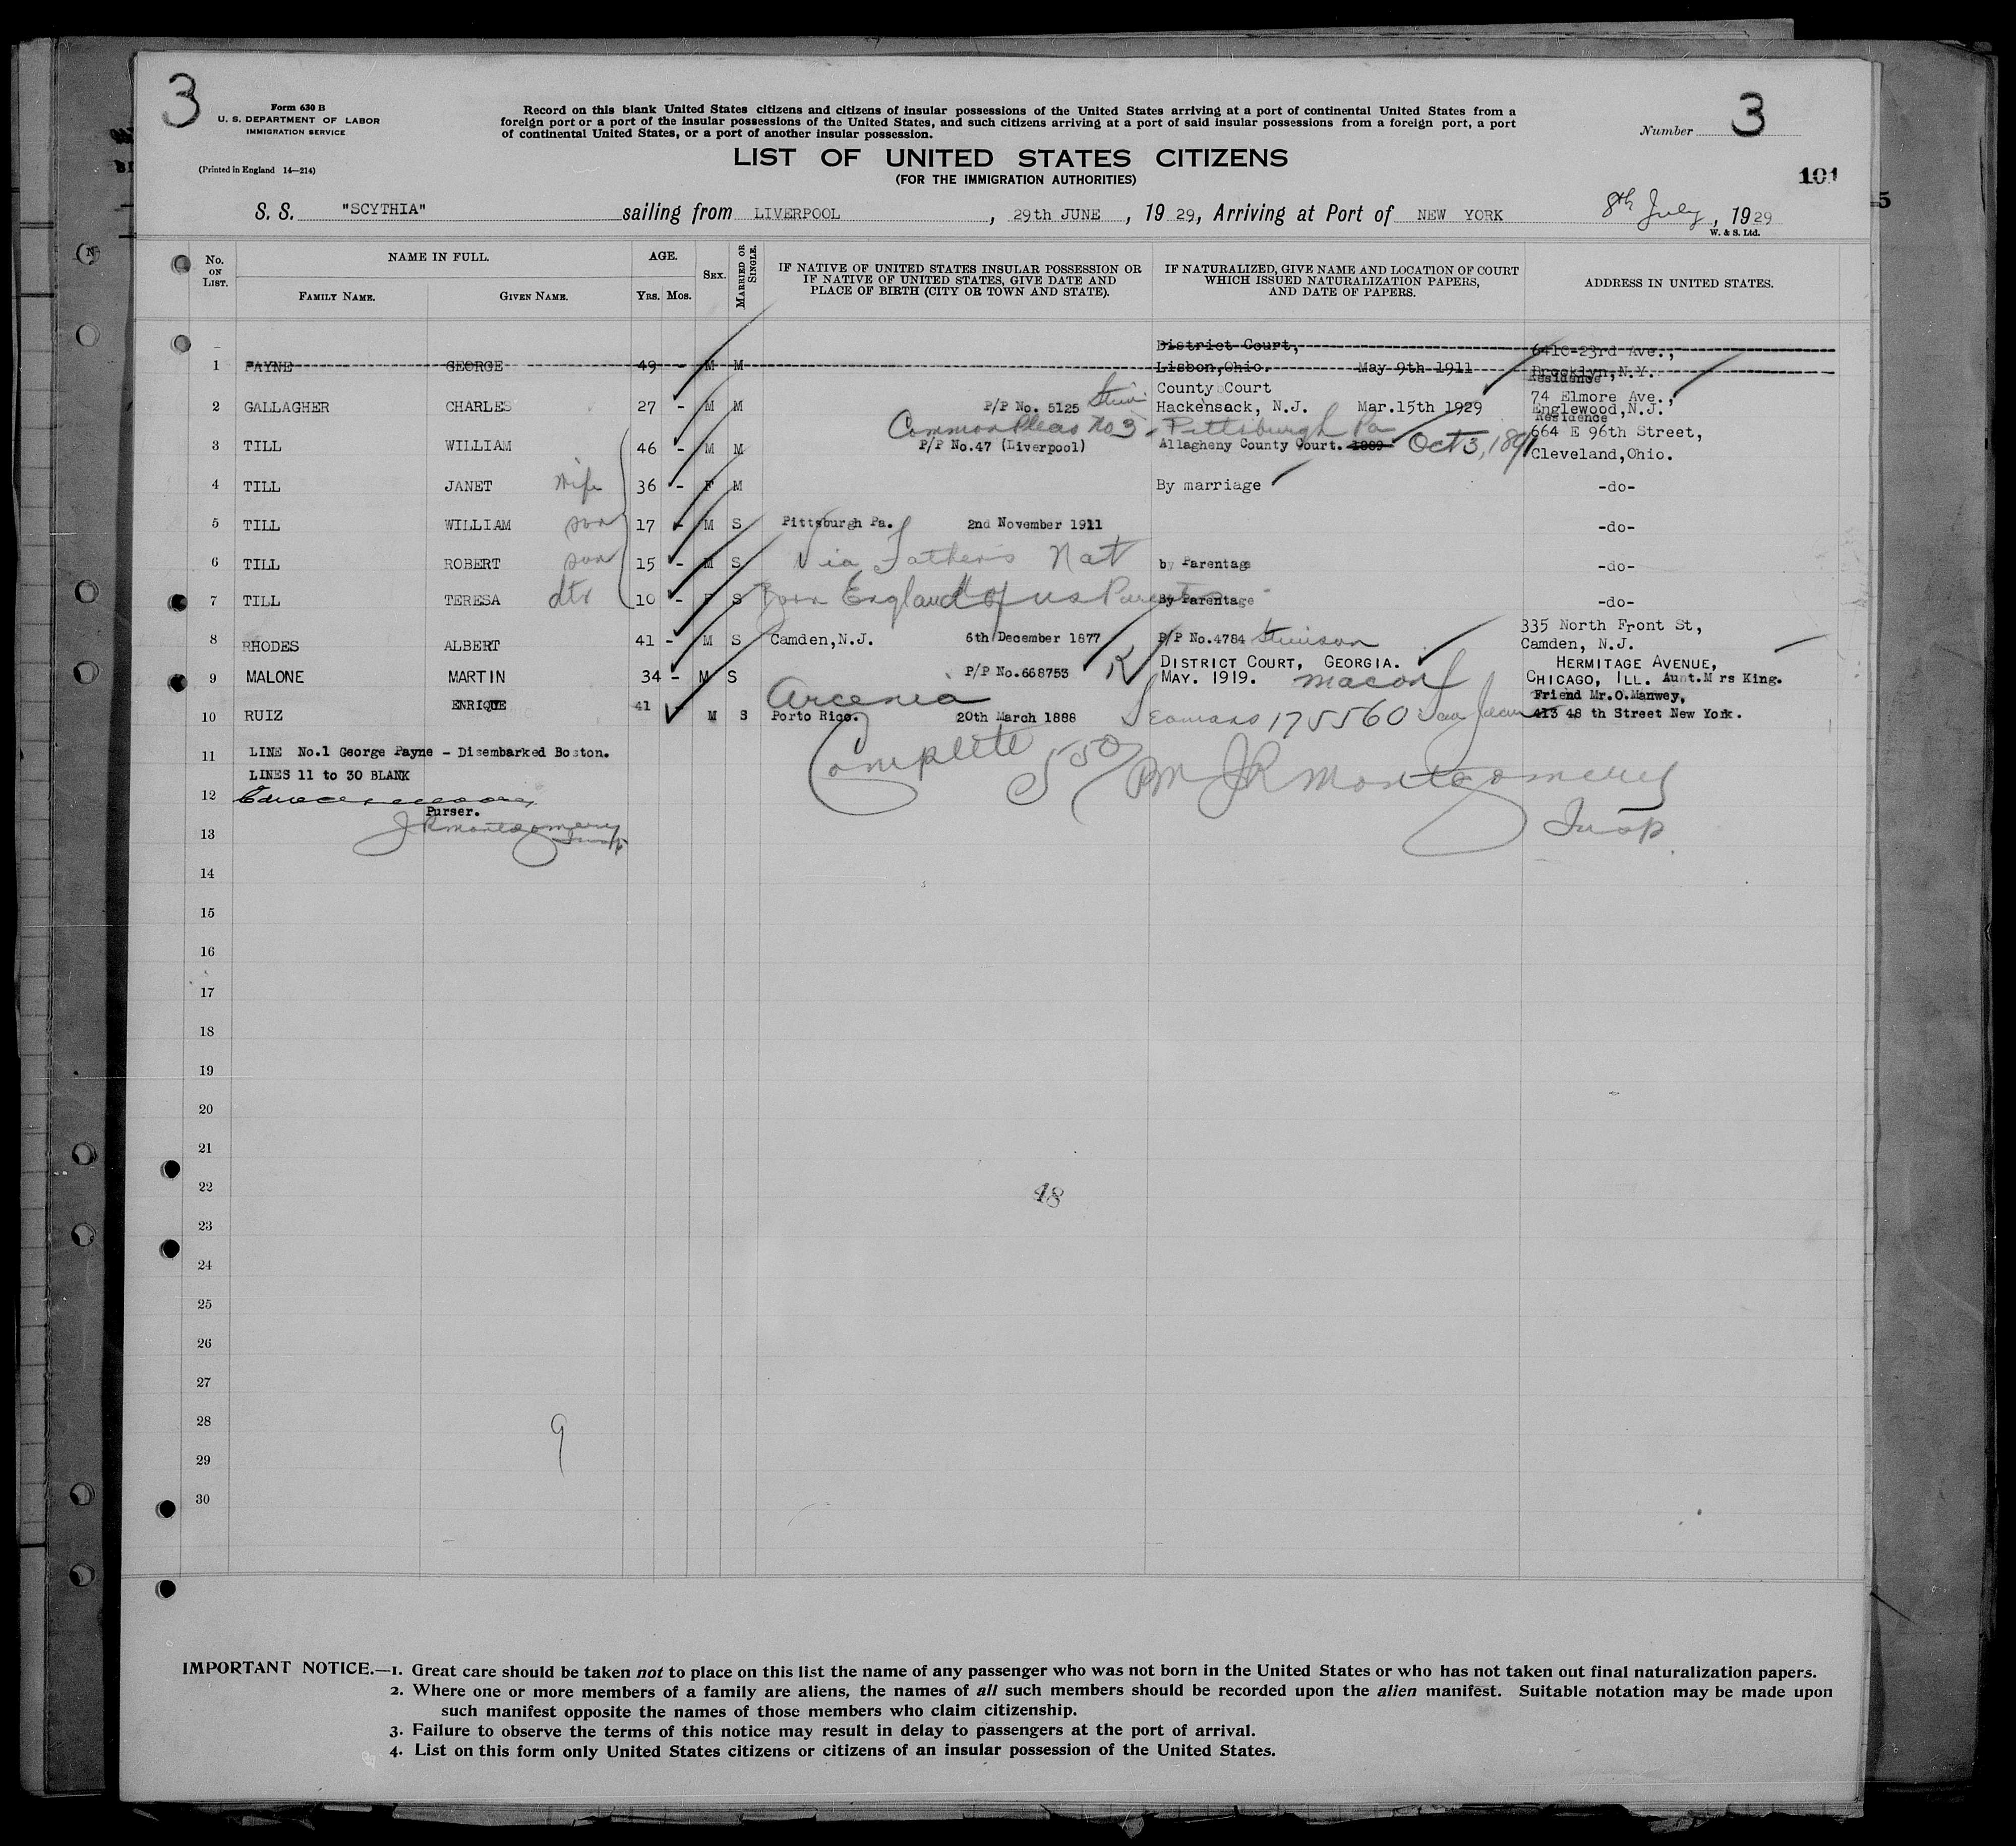 3
Form 630 B
U. S. DEPARTMENT OF LABOR
IMMIGRATION SERVICE
(Printed in England 14—214)
Record on this blank United States citizens and citizens of insular possessions of the United States arriving at a port of continental United States from a
foreign port or a port of the insular possessions of the United States, and such citizens arriving at a port of said insular possessions from a foreign port, a port
of continental United States, or a port of another insular possession.
Number 3
LIST OF UNITED STATES CITIZENS
(FOR THE IMMIGRATION AUTHORITIES)
101
5
S. S. "SCYTHIA" sailing from LIVERPOOL, 29th JUNE, 19 29, Arriving at Port of NEW YORK 8th July, 19 29
W. & S. Ltd.
No. ON LIST.
NAME IN FULL.
FAMILY NAME. GIVEN NAME.
AGE.
YRS. MOS.
SEX.
MARRIED OR SINGLE.
IF NATIVE OF UNITED STATES INSULAR POSSESSION OR
IF NATIVE OF UNITED STATES, GIVE DATE AND
PLACE OF BIRTH (CITY OR TOWN AND STATE).
IF NATURALIZED, GIVE NAME AND LOCATION OF COURT
WHICH ISSUED NATURALIZATION PAPERS,
AND DATE OF PAPERS.
ADDRESS IN UNITED STATES.
District Court, 6410-23rd Ave.,
1 PAYNE GEORGE 49 - M M Lisbon, Ohio. May 9th 1911 Brooklyn, N.Y.
County Court Residence
74 Elmore Ave.,
2 GALLAGHER CHARLES 27 - M M P/P No. 5125 Hackensack, N.J. Mar.15th 1929 Englewood, N.J.
Common Pleas No 3 - Pittsburgh Pa Residence
664 E 96th Street,
3 TILL WILLIAM 46 - M M P/P No.47 (Liverpool) Allagheny County Court. 1889 Oct 3, 1891
Cleveland, Ohio.
4 TILL JANET wife 36 - F M By marriage -do-
5 TILL WILLIAM son 17 - M S Pittsburgh Pa. 2nd November 1911 -do-
6 TILL ROBERT son 15 - M S Via Father's Nat by Parentage -do-
7 TILL TERESA dtr 10 - F S Born England of US Parents By Parentage -do-
335 North Front St,
8 RHODES ALBERT 41 - M S Camden, N.J. 6th December 1877 P/P No.4784 Stimson Camden, N.J.
DISTRICT COURT, GEORGIA. HERMITAGE AVENUE,
9 MALONE MARTIN 34 - M S P/P No.668753 K MAY. 1919. Macon CHICAGO, ILL. Aunt. Mrs King.
Arcenia Friend Mr. O. Manwey,
10 RUIZ ENRIQUE 41 - M S Porto Rico. 20th March 1888 Seamans 175560 San Juan 413 48 th Street New York.
11 LINE No.1 George Payne - Disembarked Boston.
LINES 11 to 30 BLANK
Complete 550 PM J R Montgomery
Insp
12
Purser.
J R Montgomery
Insp
13
14
15
16
17
18
19
20
21
22
48
23
24
25
26
27
28
9
29
30
IMPORTANT NOTICE.—1. Great care should be taken not to place on this list the name of any passenger who was not born in the United States or who has not taken out final naturalization papers.
2. Where one or more members of a family are aliens, the names of all such members should be recorded upon the alien manifest. Suitable notation may be made upon
such manifest opposite the names of those members who claim citizenship.
3. Failure to observe the terms of this notice may result in delay to passengers at the port of arrival.
4. List on this form only United States citizens or citizens of an insular possession of the United States.